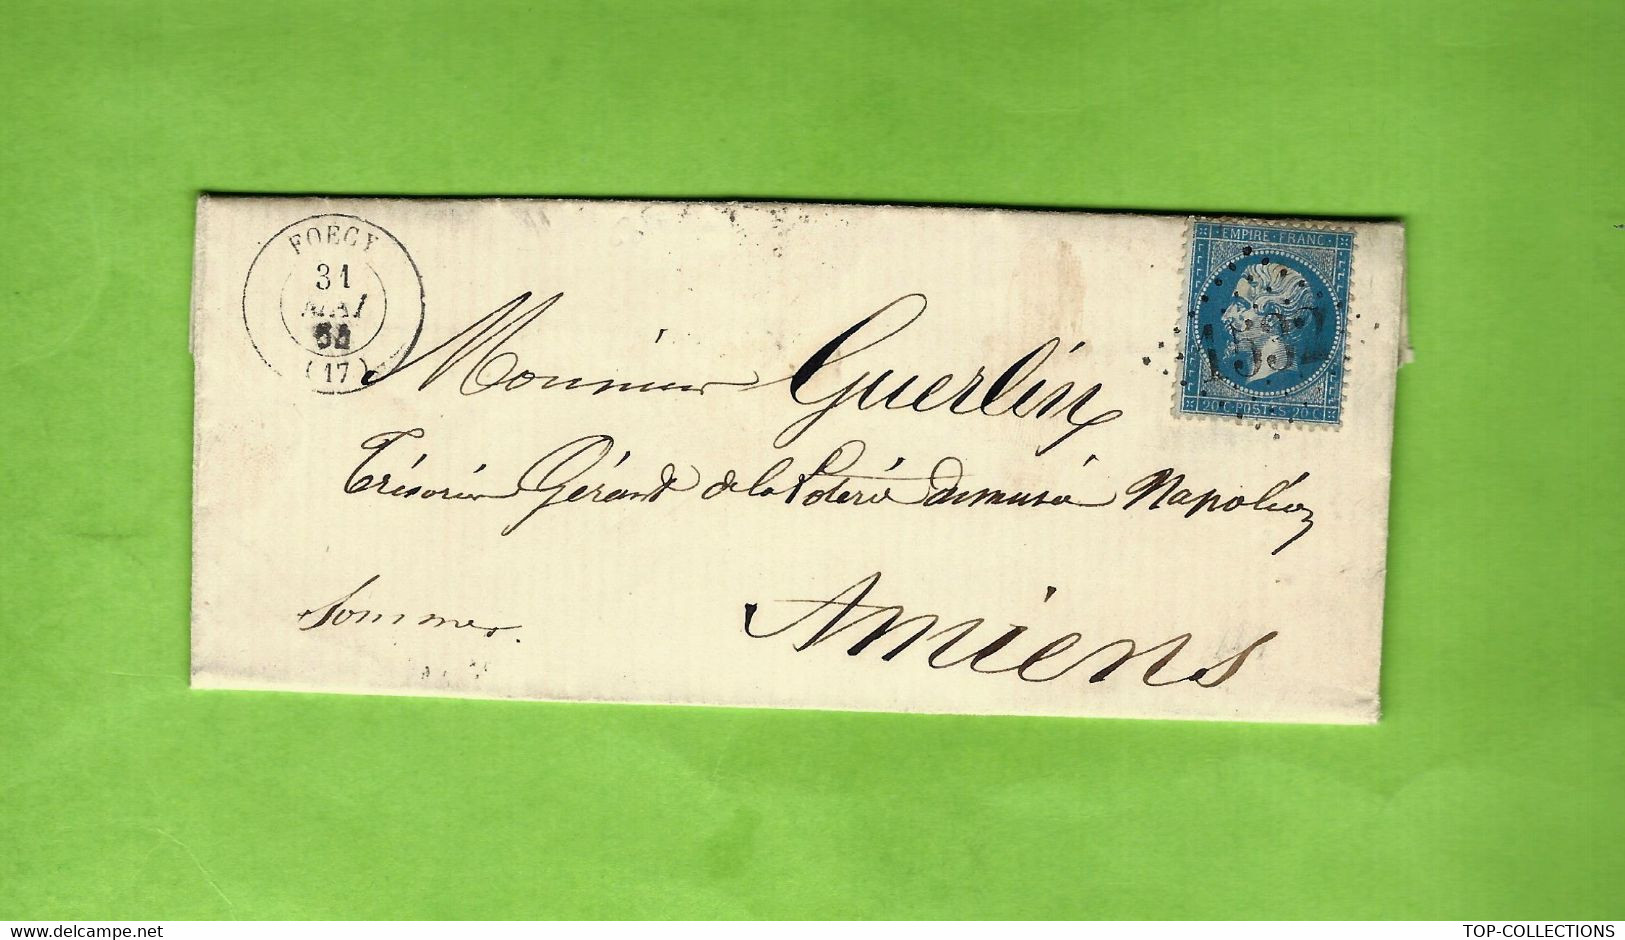 FOECY
31
MAI
(17)
EMPIRE · FRANC ·
1532
20 C POSTES 20 C
Monsieur Guerlin
Trésorier Gérant de la Loterie du musée Napoléon
Somme.
Amiens
delcampe.net
TOP-COLLECTIONS